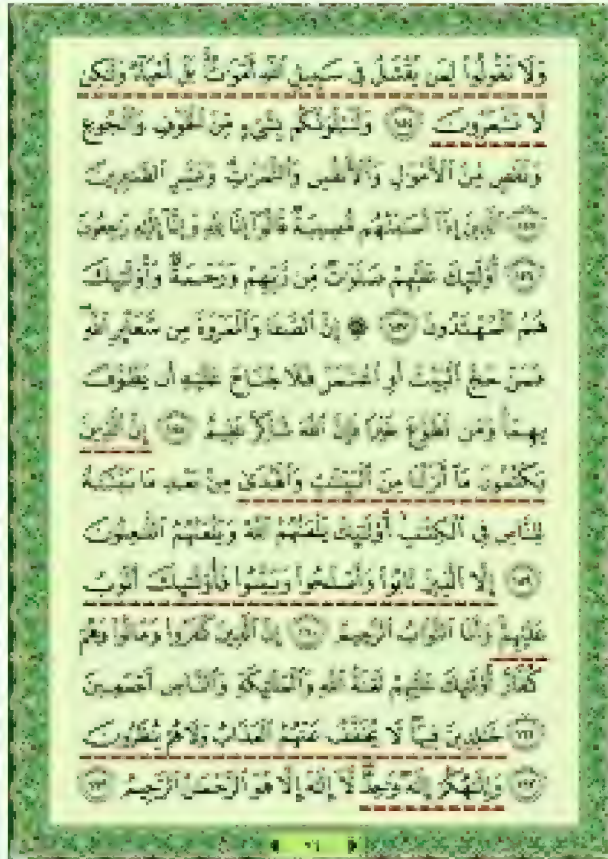 وَلَا تَقُولُوا۟ لِمَن يُقْتَلُ فِى سَبِيلِ ٱللَّهِ أَمْوَٰتٌۢ بَلْ أَحْيَآءٌ وَلَٰكِن
لَّا تَشْعُرُونَ ١٥٤ وَلَنَبْلُوَنَّكُم بِشَىْءٍ مِّنَ ٱلْخَوْفِ وَٱلْجُوعِ
وَنَقْصٍ مِّنَ ٱلْأَمْوَٰلِ وَٱلْأَنفُسِ وَٱلثَّمَرَٰتِ وَبَشِّرِ ٱلصَّٰبِرِينَ
١٥٥ ٱلَّذِينَ إِذَآ أَصَٰبَتْهُم مُّصِيبَةٌ قَالُوٓا۟ إِنَّا لِلَّهِ وَإِنَّآ إِلَيْهِ رَٰجِعُونَ
١٥٦ أُو۟لَٰٓئِكَ عَلَيْهِمْ صَلَوَٰتٌ مِّن رَّبِّهِمْ وَرَحْمَةٌ وَأُو۟لَٰٓئِكَ
هُمُ ٱلْمُهْتَدُونَ ١٥٧ ۞ إِنَّ ٱلصَّفَا وَٱلْمَرْوَةَ مِن شَعَآئِرِ ٱللَّهِ
فَمَنْ حَجَّ ٱلْبَيْتَ أَوِ ٱعْتَمَرَ فَلَا جُنَاحَ عَلَيْهِ أَن يَطَّوَّفَ
بِهِمَا وَمَن تَطَوَّعَ خَيْرًا فَإِنَّ ٱللَّهَ شَاكِرٌ عَلِيمٌ ١٥٨ إِنَّ ٱلَّذِينَ
يَكْتُمُونَ مَآ أَنزَلْنَا مِنَ ٱلْبَيِّنَٰتِ وَٱلْهُدَىٰ مِنۢ بَعْدِ مَا بَيَّنَّٰهُ
لِلنَّاسِ فِى ٱلْكِتَٰبِ أُو۟لَٰٓئِكَ يَلْعَنُهُمُ ٱللَّهُ وَيَلْعَنُهُمُ ٱللَّٰعِنُونَ
١٥٩ إِلَّا ٱلَّذِينَ تَابُوا۟ وَأَصْلَحُوا۟ وَبَيَّنُوا۟ فَأُو۟لَٰٓئِكَ أَتُوبُ
عَلَيْهِمْ وَأَنَا ٱلتَّوَّابُ ٱلرَّحِيمُ ١٦٠ إِنَّ ٱلَّذِينَ كَفَرُوا۟ وَمَاتُوا۟ وَهُمْ
كُفَّارٌ أُو۟لَٰٓئِكَ عَلَيْهِمْ لَعْنَةُ ٱللَّهِ وَٱلْمَلَٰٓئِكَةِ وَٱلنَّاسِ أَجْمَعِينَ
١٦١ خَٰلِدِينَ فِيهَا لَا يُخَفَّفُ عَنْهُمُ ٱلْعَذَابُ وَلَا هُمْ يُنظَرُونَ
١٦٢ وَإِلَٰهُكُمْ إِلَٰهٌ وَٰحِدٌ لَّآ إِلَٰهَ إِلَّا هُوَ ٱلرَّحْمَٰنُ ٱلرَّحِيمُ ١٦٣